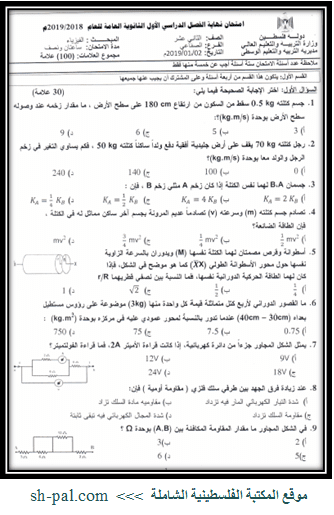 امتحان نهاية الفصل الدراسي الأول الثانوية العامة للعام 2019/2018م
دولة فلسطين
وزارة التربية والتعليم العالي
مديرية التربية والتعليم الوسطى
الصف: الثاني عشر
الفرع: الصناعي
التاريخ: 2019/01/02م
المبحث: الفيزياء
مدة الامتحان: ساعتان ونصف
مجموع العلامات: (100) علامة
ملاحظة: عدد أسئلة الامتحان ستة أسئلة أجب عن خمسة منها فقط
القسم الأول: يتكون هذا القسم من أربعة أسئلة وعلى المشترك أن يجيب عنها جميعها
السؤال الأول: اختر الإجابة الصحيحة فيما يلي: (30 علامة)
1. جسم كتلته 0.5 kg سقط من السكون من ارتفاع 180 cm على سطح الأرض، ما مقدار زخمه عند وصوله
سطح الأرض بوحدة (kg.m/s)؟
أ) 3 ب) 5 ج) 6 د) 9
2. رجل كتلته 70 kg يقف على أرض جليدية أفقية دفع ولداً ساكناً كتلته 50 kg، فكم يساوي التغير في زخم
الرجل والولد معا بوحدة (kg.m/s)؟
أ) 0 ب) 100 ج) 140 د) 240
3. جسمان B،A لهما نفس الكتلة إذا كان زخم A مثلي زخم B ، فإن:
أ) KA = 2 KB ب) KA = 4 KB ج) KA = ½ KB د) KA = ¼ KB
4. تصادم جسم كتلته (m) وسرعته (v) تصادماً عديم المرونة بجسم آخر ساكن مماثل له في الكتلة.
فإن الطاقة الضائعة؟
أ) ½ mv² ب) ¼ mv² ج) ¾ mv² د) mv²
5. أسطوانة وقرص مصمتان لهما الكتلة نفسها (M) ويدوران بالسرعة الزاوية
نفسها حول محور الأسطوانة الطولي (XX) كما هو موضح في الشكل، فإذا
كان لهما الطاقة الحركية الدورانية نفسها، فما النسبة بين نصفي قطريهما r/R
6. ما القصور الدوراني لأربع كتل متماثلة قيمة كل واحدة منها (3kg) موضوعة على رؤوس مستطيل
بعداه (40cm – 30cm) عندما تدور بالنسبة لمحور عمودي عليه في مركزه بوحدة (kg.m²):
أ) 0.75 ب) 7.5 ج) 75 د) 750
7. يمثل الشكل المجاور جزءاً من دائرة كهربائية، إذا كانت قراءة الأميتر 2A، فما قراءة الفولتميتر؟
أ) 9V ب) 12V
ج) 18V د) 24V
8. عند زيادة فرق الجهد بين طرفي سلك فلزي (مقاومة أومية) فإن:
أ) شدة التيار الكهربائي المار فيه تزداد ب) مقاومية مادة السلك تزداد
ج) مقاومة السلك تزداد د) شدة المجال الكهربائي فيه تبقى ثابتة
9. في الشكل المجاور ما مقدار المقاومة المكافئة بين (A,B) بوحدة Ω ؟
أ) 2 ب) 3
ج) 5 د) 6
موقع المكتبة الفلسطينية الشاملة >>> sh-pal.com